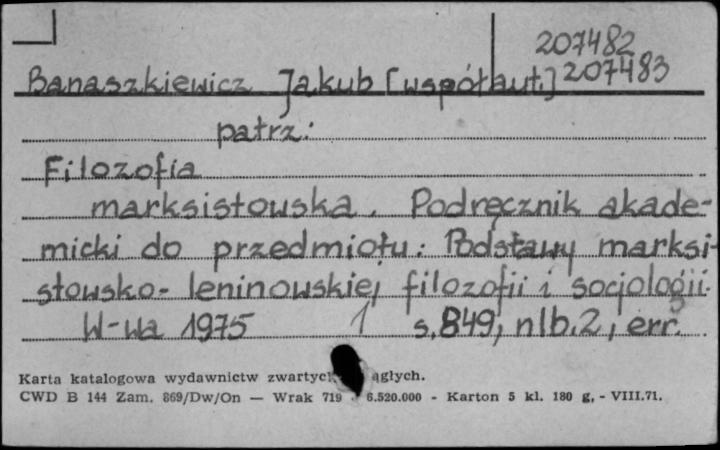 207482
Banaszkiewicz Jakub [współaut.] 207483
patrz:
Filozofia
marksistowska. Podręcznik akade-
micki do przedmiotu: Podstawy marksi-
stowsko-leninowskiej filozofii i socjologii.
W-wa 1975 1 s. 849, nlb. 2, err.
Karta katalogowa wydawnictw zwartych
CWD B 144 Zam. 869/Dw/On — Wrak 719 6.520.000 - Karton 5 kl. 180 g, - VIII.71.